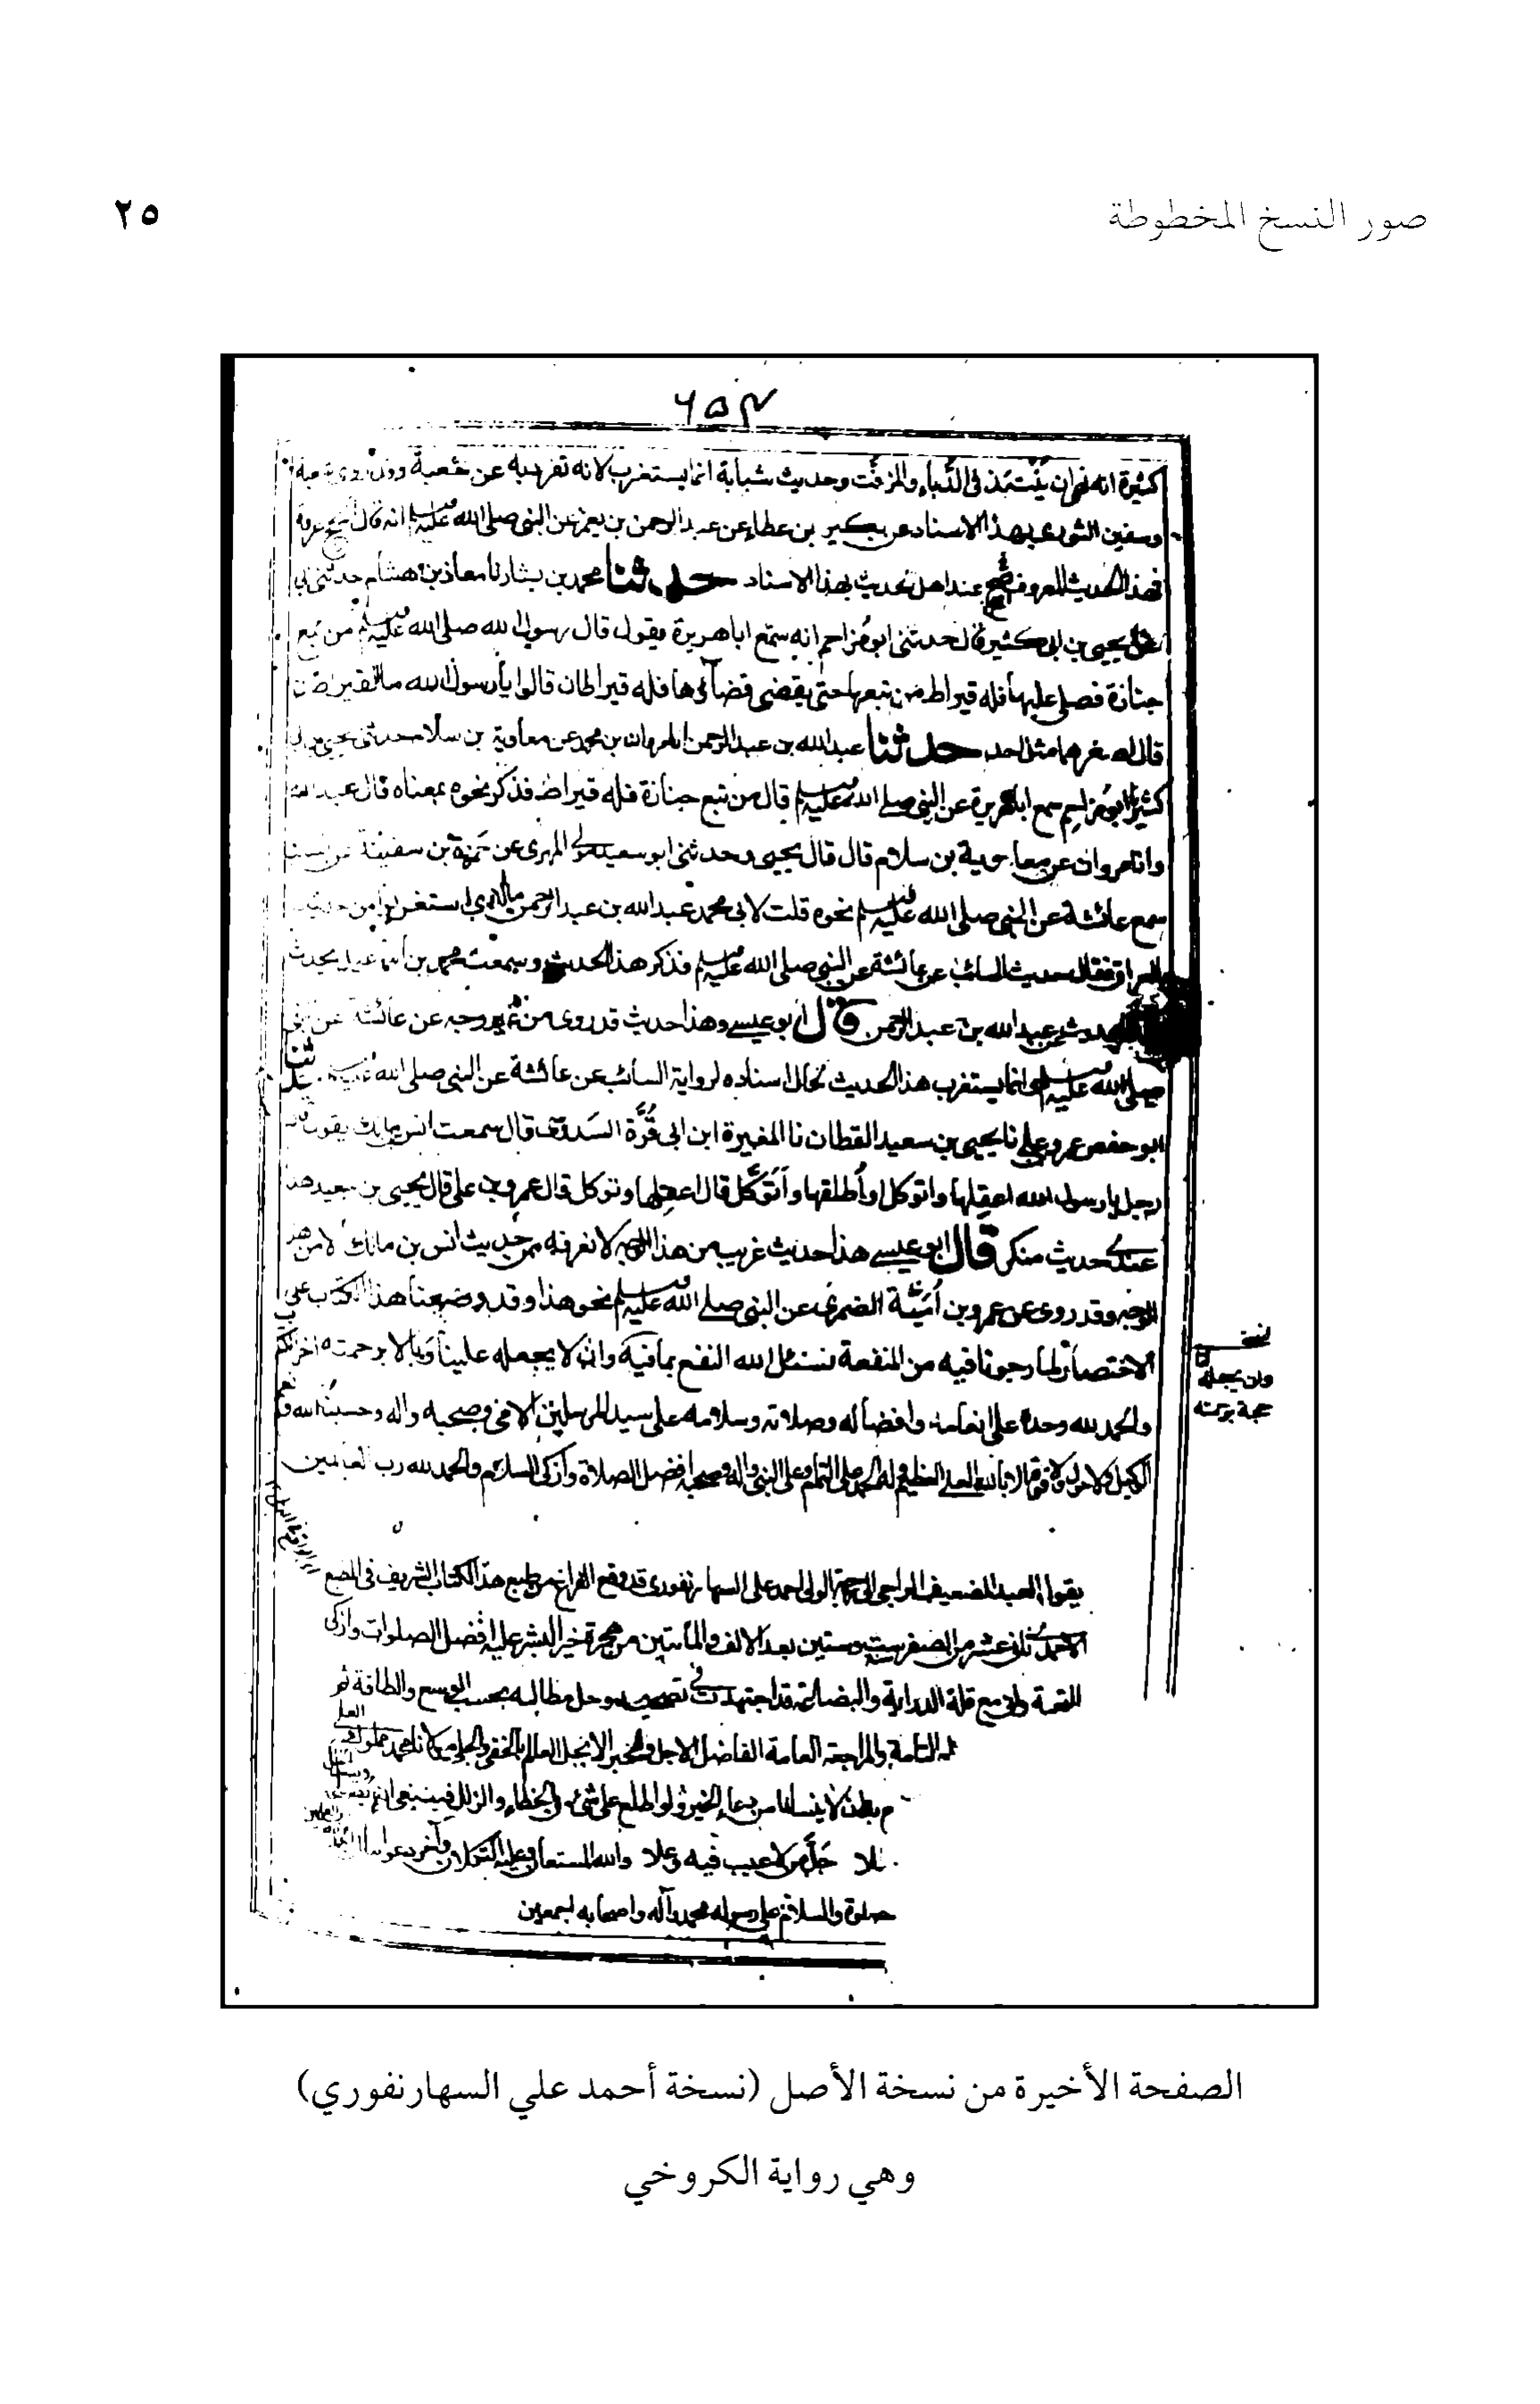 صور النسخ المخطوطة
٢٥
كثيرة انه نهى ان ينتبذ في الدُّباء والمزفت وحديث شبابة انما يستغرب لانه تفرد به عن شعبة وقد روى شعبة
وسفين الثورى بهذا الاسناد عن بكير بن عطاء عن عبد الرحمن بن يعمر عن النبي صلى الله عليه وسلم انه قال الحج عرفة
فهذا الحديث المعروف عند اهل الحديث بهذا الاسناد حدثنا محمد بن بشار نا معاذ بن هشام حدثني ابي
عن يحيى بن ابي كثير قال حدثني ابو مزاحم انه سمع ابا هريرة يقول قال رسول الله صلى الله عليه وسلم من تبع
جنازة فصلى عليها فله قيراط ومن تبعها حتى يقضى قضاؤها فله قيراطان قالوا يا رسول الله ما القيراطان
قال اصغرهما مثل احد حدثنا عبد الله بن عبد الرحمن انا مروان بن محمد عن معاوية بن سلام حدثني يحيى بن ابي
كثير نا ابو مزاحم سمع ابا هريرة عن النبي صلى الله عليه وسلم قال من تبع جنازة فله قيراط فذكر نحوه بمعناه قال عبد الله
وانا مروان عن معاوية بن سلام قال قال يحيى وحدثني ابو سعيد مولى المهرى عن حمزة بن سفينة عن السائب
سمع عائشة عن النبي صلى الله عليه وسلم نحوه قلت لابي محمد عبد الله بن عبد الرحمن ما الذي استغربوا من حديثك
بالعراق فقال حديث السائب عن عائشة عن النبي صلى الله عليه وسلم فذكر هذا الحديث وسمعت محمد بن اسماعيل يحدث
بهذا الحديث عن عبد الله بن عبد الرحمن قال ابو عيسى وهذا حديث قد روى من غير وجه عن عائشة عن النبي
صلى الله عليه وسلم وانما يستغرب هذا الحديث لحال اسناده لرواية السائب عن عائشة عن النبي صلى الله عليه وسلم حدثنا
ابو حفص عمرو بن علي نا يحيى بن سعيد القطان نا المغيرة ابن ابي قُرَّة السدوسي قال سمعت انس بن مالك يقول قال
رجل يا رسول الله اعقلها واتوكل او أُطلقها واتوكل قال اعقلها وتوكل قال عمرو بن علي قال يحيى بن سعيد هذا
عندي حديث منكر قال ابو عيسى هذا حديث غريب من هذا الوجه لا نعرفه من حديث انس بن مالك الا من هذا
الوجه وقد روى عن عمرو بن أمية الضمرى عن النبي صلى الله عليه وسلم نحو هذا وقد وضعنا هذا الكتاب على
الاختصار لما رجونا فيه من المنفعة نسئل الله النفع بما فيه وان لا يجعله علينا وبالا برحمته اخر الكتاب
والحمد لله وحده على انعامه وافضاله وصلاته وسلامه على سيد المرسلين الامي وصحبه واله وحسبنا الله ونعم
الوكيل ولا حول ولا قوة الا بالله العلي العظيم وله الحمد على التمام وعلى النبي واله وصحبه افضل الصلاة وأزكى السلام والحمد لله رب العالمين
نسخة
وان يجعله
حجة برحمته
يقول العبد الضعيف الراجي الى رحمة الولى احمد على السهارنفورى قد وقع الفراغ من طبع هذا الكتاب الشريف في المطبع
الاحمدي ثاني عشر من الصفر سنة وستين بعد الالف والمائتين من هجرة خير البشر عليه افضل الصلوات وازكى
التحية واني مع قلة الدراية والبضاعة قد اجتهدت في تصحيحه وحل مطالبه بحسب الوسع والطاقة ثم
التامة والمراجعة العامة الفاضل الاجل والحبر الابجل العالم بالخفي والجلي مولانا محمد مملوك العلي
لا ينسانا من دعاء الخير ولو اطلع على شيء من الخطاء والزلل فينبغي ان
جل من لا عيب فيه وعلا والله المستعان وعليه التكلان وآخر دعوانا ان الحمد لله
صلوة والسلام على رسوله محمد وآله واصحابه اجمعين
الصفحة الأخيرة من نسخة الأصل (نسخة أحمد علي السهارنفوري)
وهي رواية الكروخي